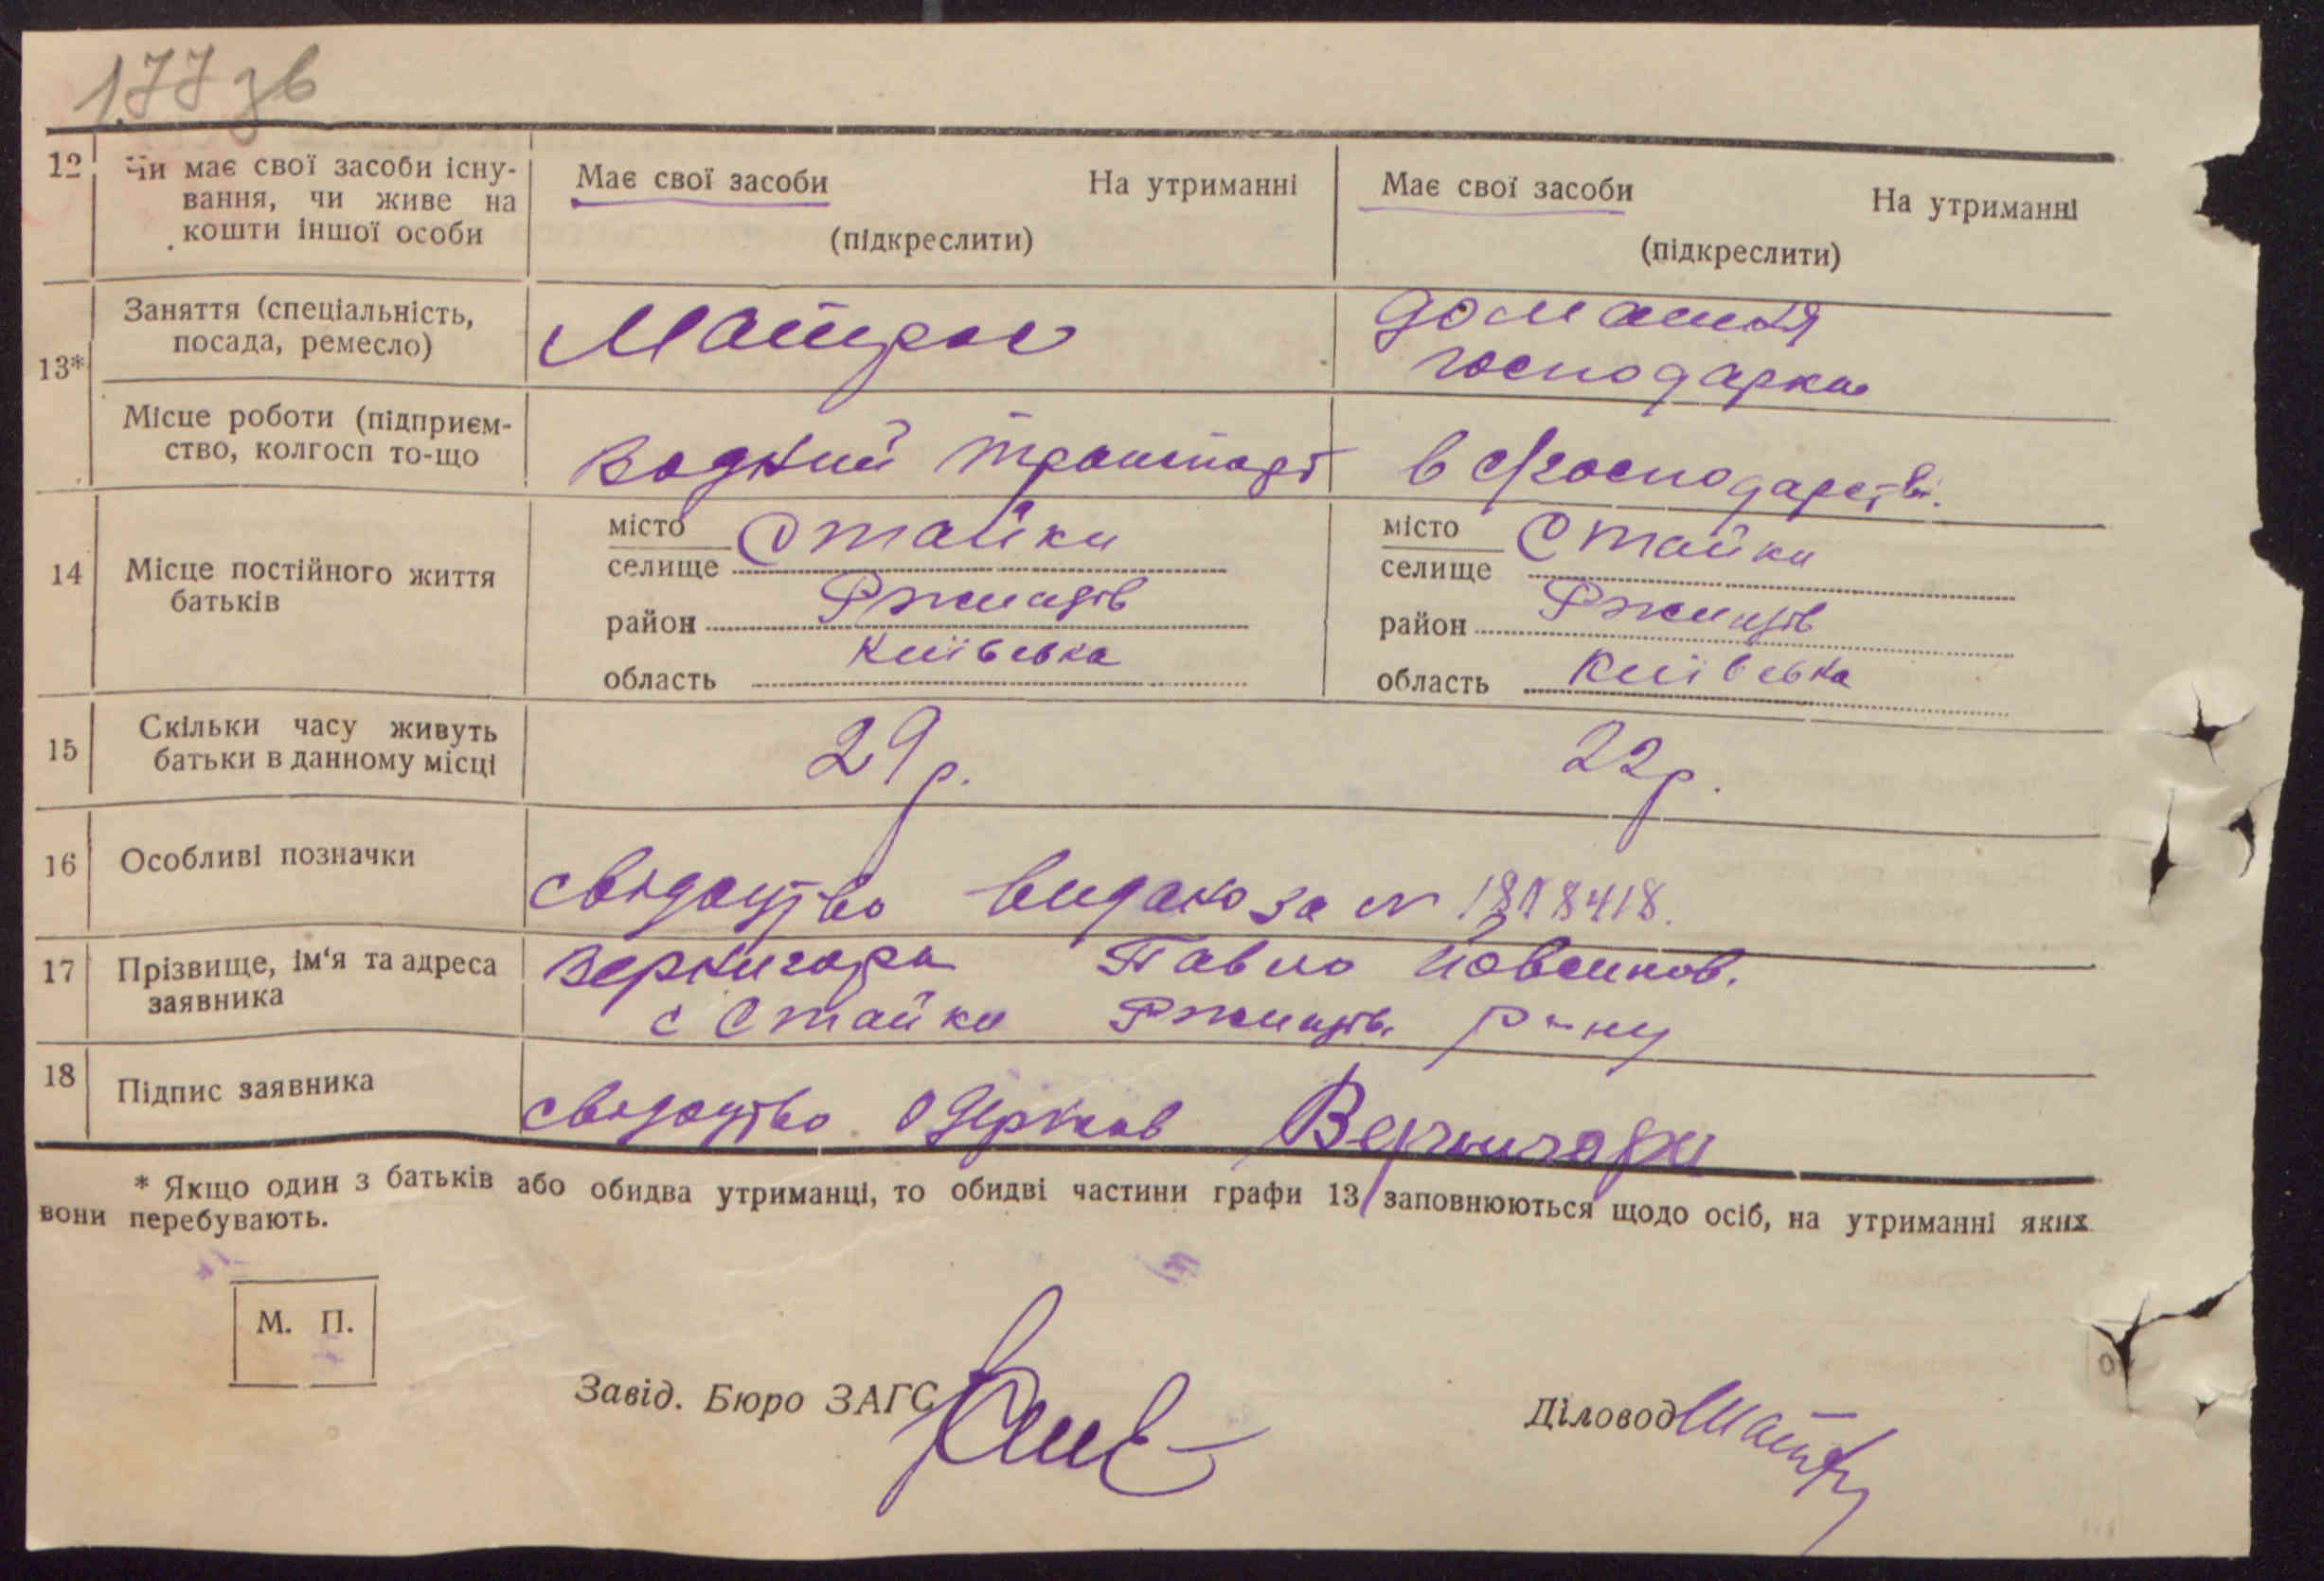 177 зв
12 Чи має свої засоби існу- Має свої засоби На утриманні Має свої засоби На утриманні
вання, чи живе на
кошти іншої особи (підкреслити) (підкреслити)
13* Заняття (спеціальність, Матрос домашня
посада, ремесло) господарка
Місце роботи (підприєм- водний транспорт в с/господарстві.
ство, колгосп то-що
14 Місце постійного життя місто Стайки місто Стайки
батьків селище селище
район Ржищів район Ржищів
область Київська область Київська
15 Скільки часу живуть 29 р. 22 р.
батьки в данному місці
16 Особливі позначки свідоцтво видано за №
17 Прізвище, ім'я та адреса Вернигора Павло
заявника с Стайки Ржищів. р-ну
18 Підпис заявника свідоцтво одержав Вернигора
* Якщо один з батьків або обидва утриманці, то обидві частини графи 13 заповнюються щодо осіб, на утриманні яких
вони перебувають.
М. П.
Завід. Бюро ЗАГС Діловод